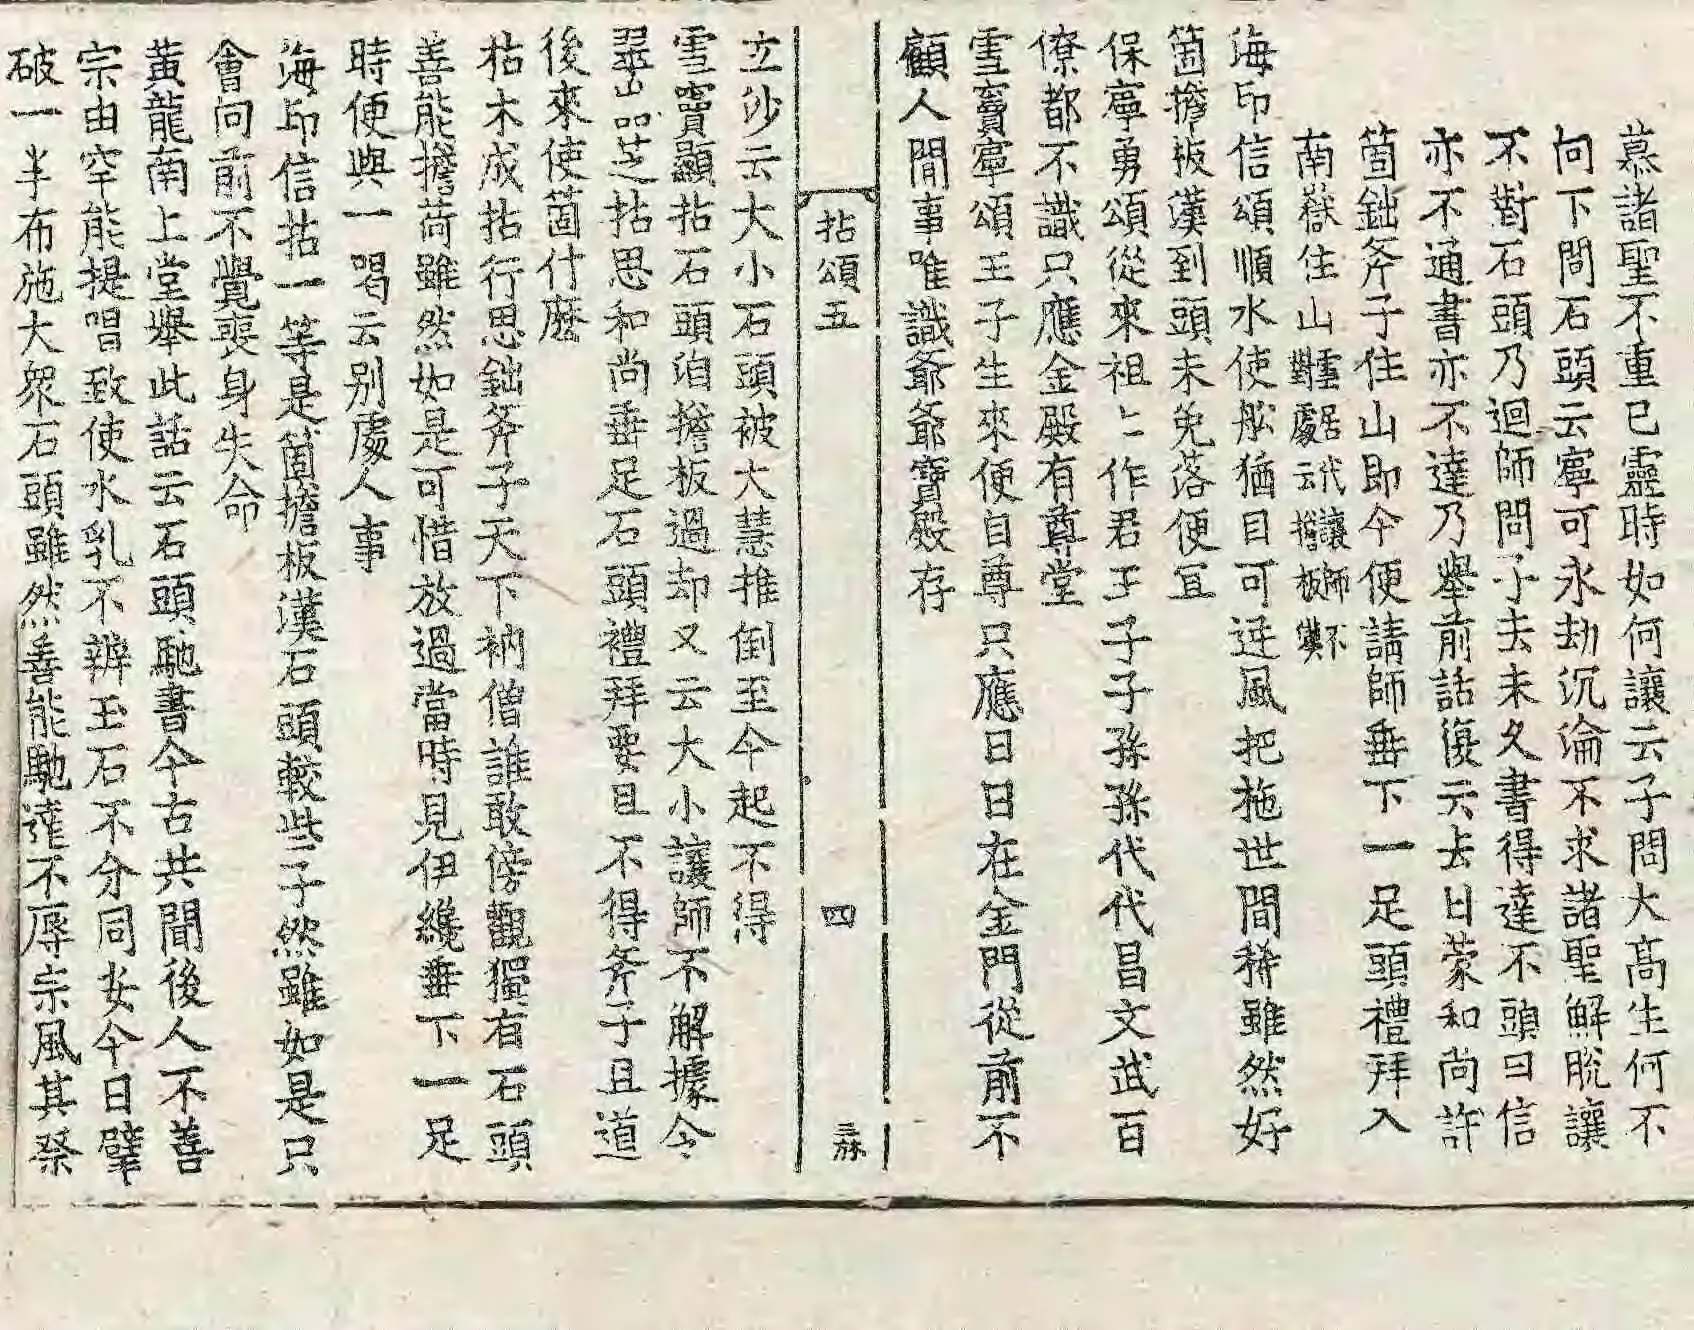 慕諸聖不重已靈時如何讓云子問大高生何不
向下問石頭云寧可永劫沉淪不求諸聖解脫讓
不對石頭乃迴師問子去未久書得達不頭曰信
亦不通書亦不達乃舉前話復云去日蒙和尚許
箇鈯斧子住山即今便請師垂下一足頭禮拜入
南嶽住山雲居代讓師不對處云擔板漢
海印信頌順水使舩猶自可逆風把拖世間稀雖然好
箇擔板漢到頭未免落便冝
保寧勇頌從來祖〻作君王子子孫孫代代昌文武百
僚都不識只應金殿有尊堂
雪竇寧頌王子生來便自尊只應日日在金門從前不
顧人間事唯識爺爺寶殿存
拈頌五
四
三孫
立沙云大小石頭被大慧推倒至今起不得
雪竇顯拈石頭洎擔板過却又云大小讓師不解據令
翠嵓芝拈思和尚垂足石頭禮拜要且不得斧子且道
後來使箇什麽
枯木成拈行思鈯斧子天下衲僧誰敢傍觀獨有石頭
善能擔荷雖然如是可惜放過當時見伊纔垂下一足
時便與一喝云別處人事
海印信拈一等是箇擔板漢石頭較些子然雖如是只
會向前不覺喪身失命
黃龍南上堂舉此話云石頭馳書今古共聞後人不善
宗由罕能提唱致使水乳不辨玉石不分同安今日擘
破一半布施大衆石頭雖然善能馳達不辱宗風其柰